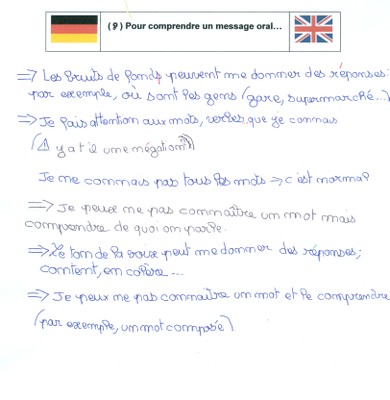 (9) Pour comprendre un message oral...
=> Les bruits de fonds peuvent me donner des réponses:
par exemple, où sont les gens (gare, supermarché...)
=> Je fais attention aux mots, verbes, que je connais
(⚠ y a t'il une négation?)
Je ne connais pas tous les mots → c'est normal
=> Je peux ne pas connaître un mot mais
comprendre de quoi on parle.
=> Le ton de la voix peut me donner des réponses;
content, en colère ...
=> Je peux ne pas connaître un mot et le comprendre
(par exemple, un mot composé)